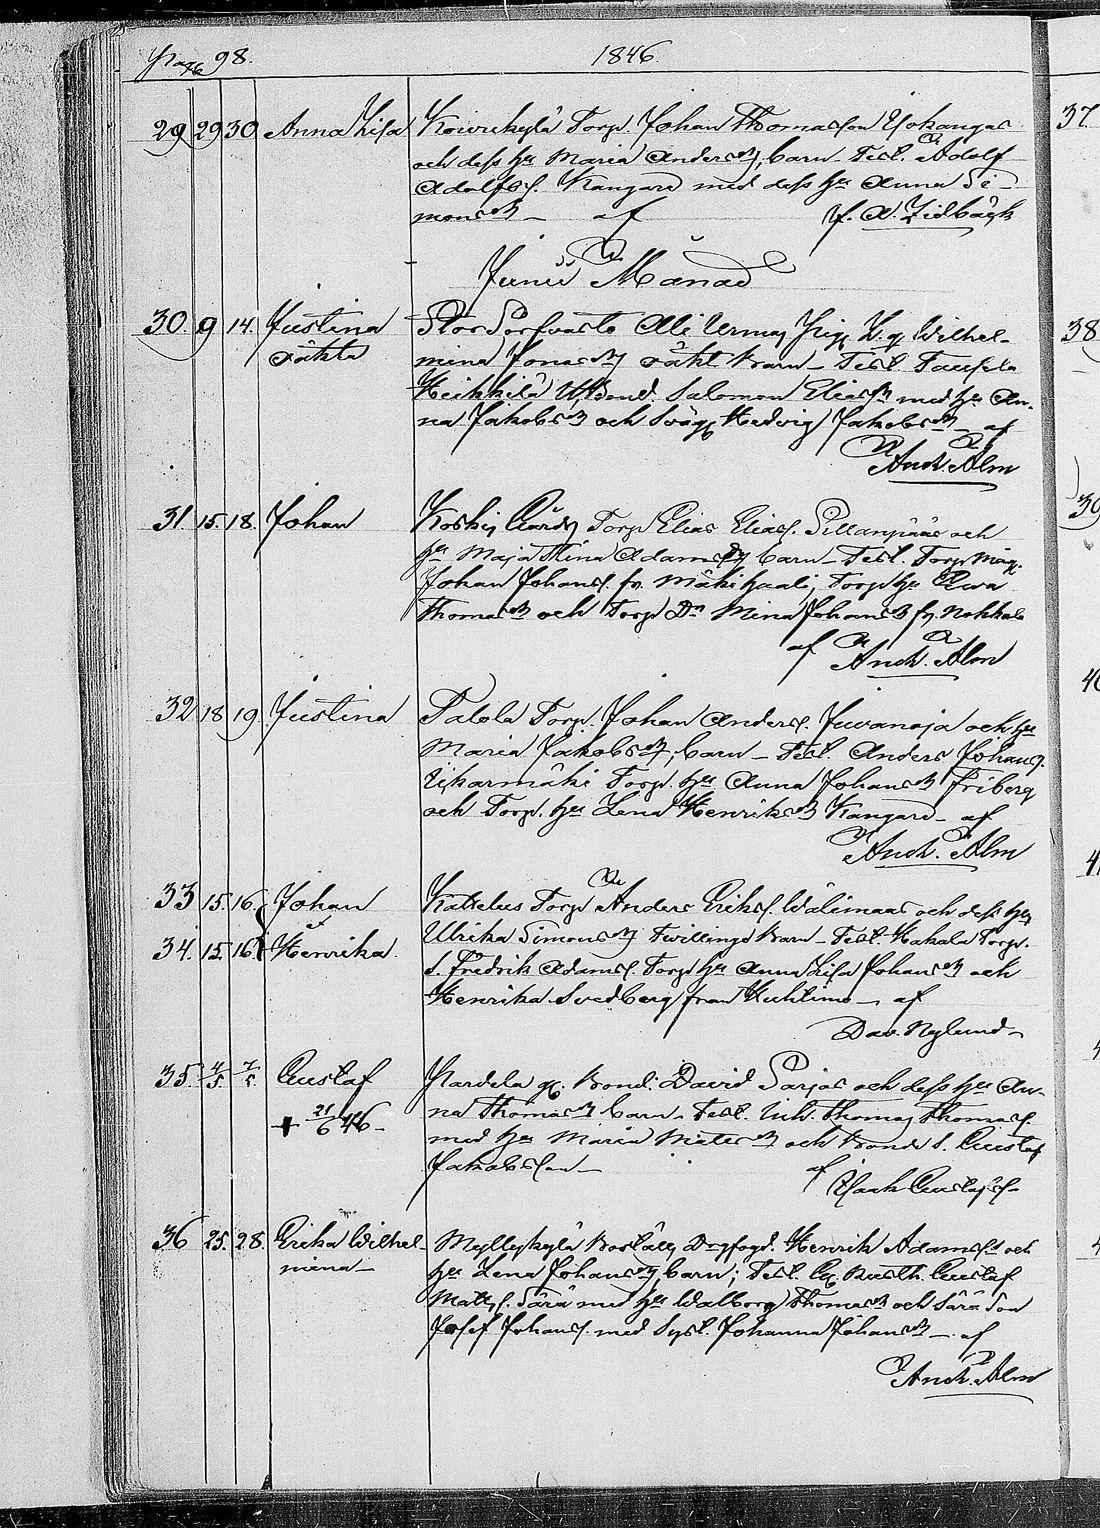 Pag 98. 1846.
29 29 30 Anna Lisa Kouvikylä Torp. Johan Thomasson Isokangas
och dess hu Maria Andersdr barn – Test. Adolf
Adolfss. Kangare med dess hu Anna Si-
monsdr – af J. A. Lidbäck
Junii Månad
30. 9 14. Justina Stor Sorfvasto Wilhel-
oäkta mina Jonasdr oäkt Barn – Test. Taufsela
Heikkilä Bond. Salomon Eliass med hu An-
na Jakobsdr och Hedvig Jakobsdr – af
And. Alm
31. 15. 18. Johan Koskis Gårds Torp Elias Eliass. Sillanpää och
hu Maja Stina Adamsdr barn – Test. Torp
Johan Johanss. fr. Mäkihaali, Torp hu Ewa
Thomasdr och Torp Dr Mina Johansdr fr. Nokkala
af And. Alm
32 18 19 Justina Talola Torp. Johan Anderss. Juvanoja och hu
Maria Jakobsdr barn – Test. Anders Johanss.
Uskarmäki Torp. hu Anna Johansdr Friberg
och Torp. hu Lena Henriksdr Kangare – af
And. Alm
33 15. 16. Johan Kattelus Torp Anders Erikss. Wälimaa och dess hu
34. 15 16 Henrika. Ulrika Simonsdr Twillings Barn – Test. Hakala Torp.
s. Fredrik Adamss. Torp hu Anna Lisa Johansdr och
Henrika Svedberg från Huhtimo – af
Dav. Nylund
35. 4/5 7/5 Gustaf Pardela Bond. David Sarjas och dess hu An-
+ 21/6 46 – na Thomasdr barn – Test. Inh. Thomas Thomass.
med hu Maria Matsdr och Bonde s. Gustaf
Jakobsson – af
Isack Gustafss –
36 25. 28. Erika Wilhel- Myllykylä Boställ Henrik Adamss och
mina – hu Lena Johansdr barn; Test. Rusth. Gustaf
Matss. Särä med hu Walborg Thomasdr och Särä Son
Josef Johanss. med Syst. Johanna Johansdr – af
And. Alm
37.
38
39